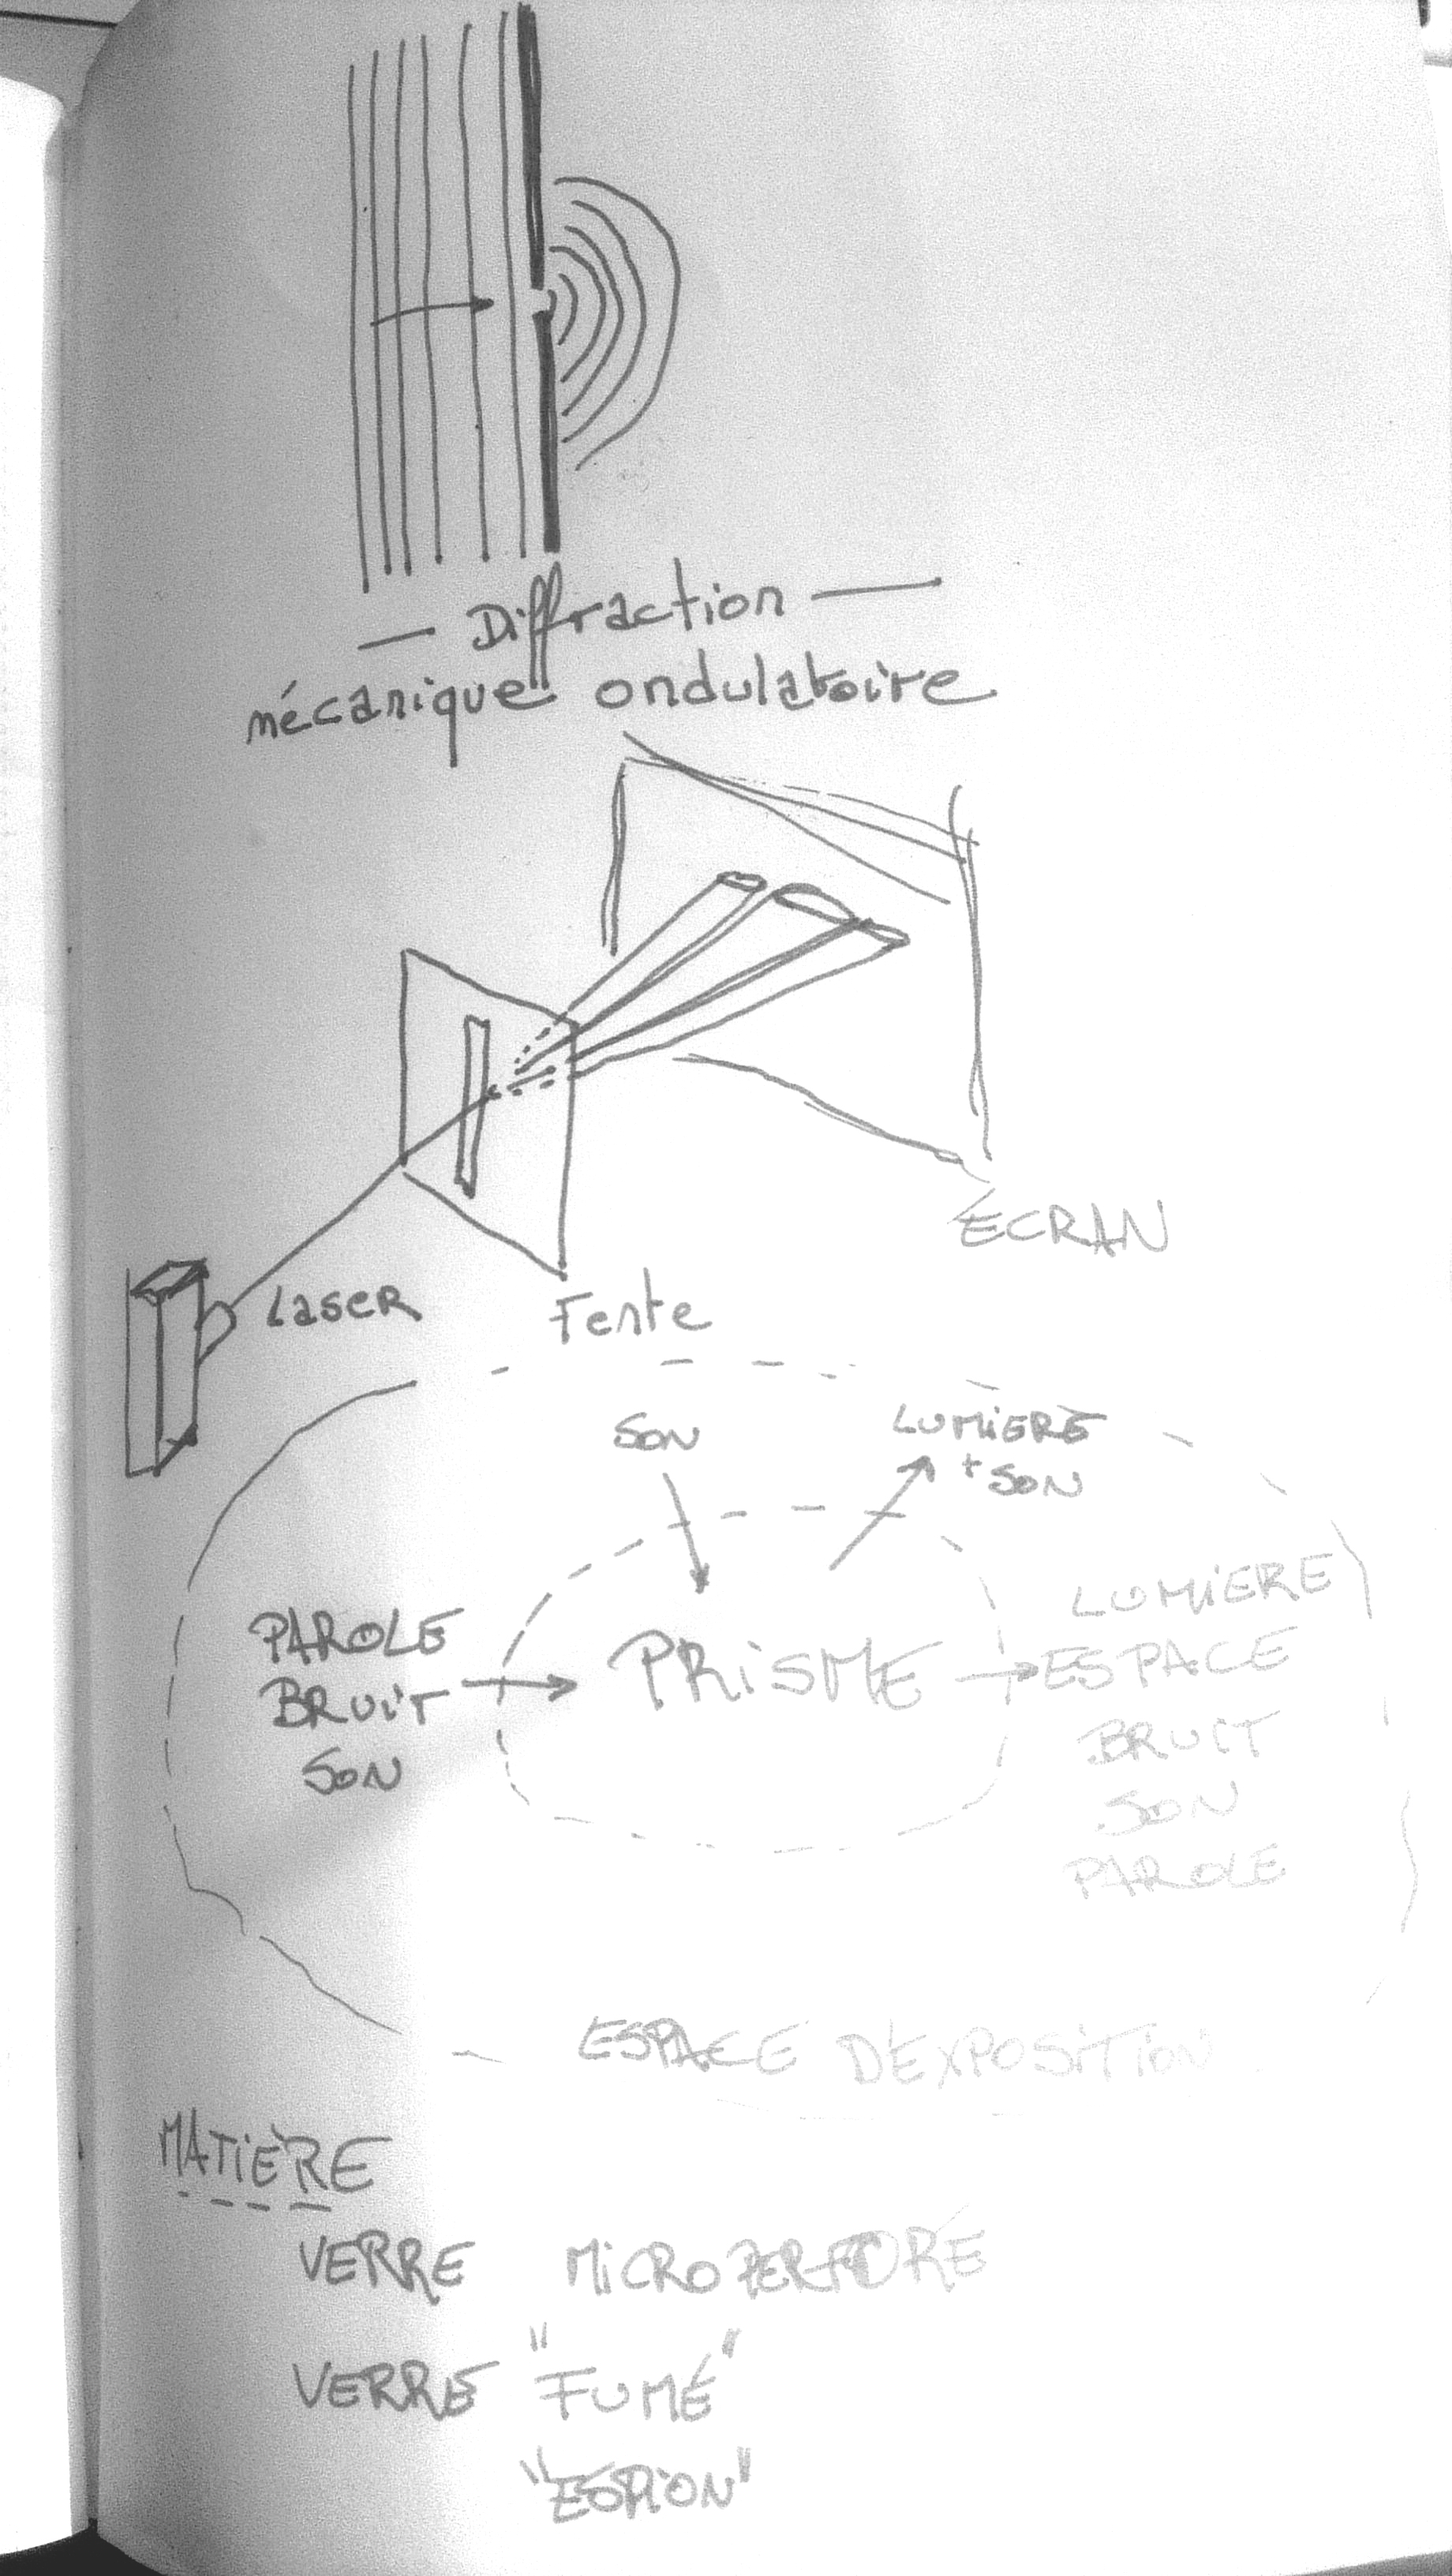 — Diffraction —
mécanique ondulatoire
ÉCRAN
Laser
Fente
SON
LUMIERE
+ SON
PAROLE
BRUIT
SON
PRISME
LUMIERE
ESPACE
BRUIT
SON
PAROLE
ESPACE D'EXPOSITION
MATIÈRE
VERRE MICRO PERFORÉ
VERRE "FUMÉ"
"ESPION"